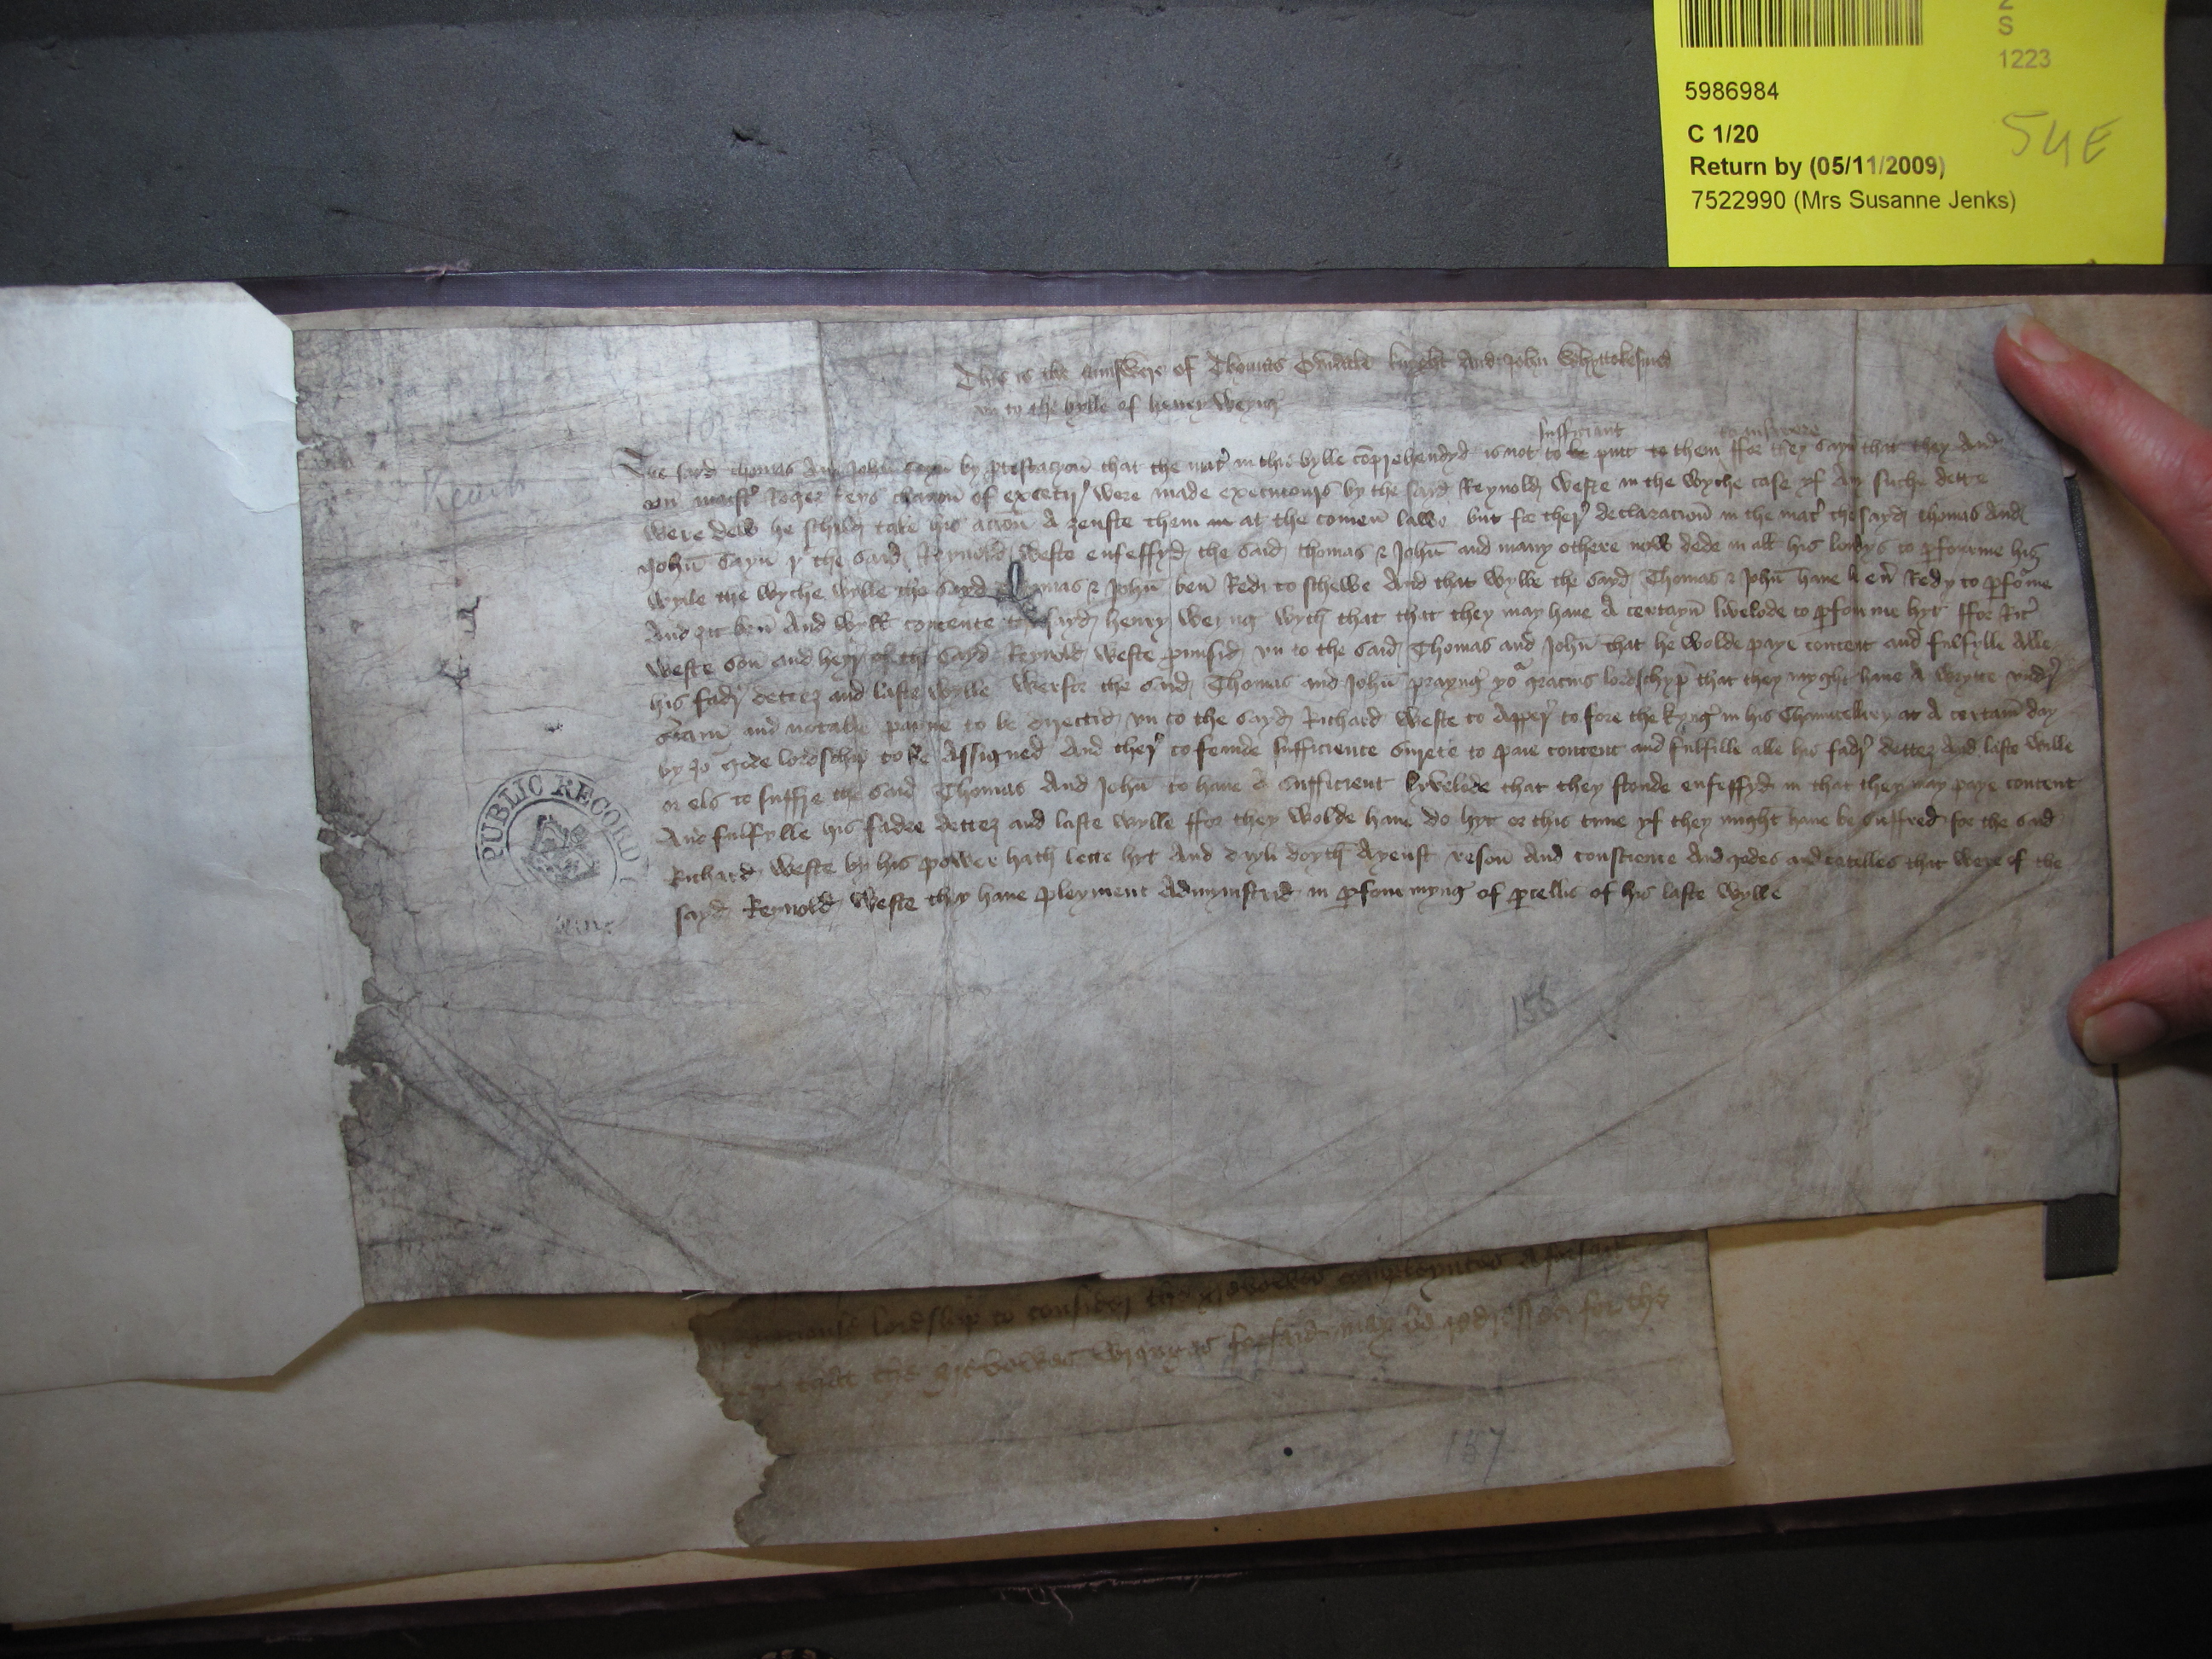 2
S
1223
5986984
C 1/20
54E
Return by (05/11/2009)
7522990 (Mrs Susanne Jenks)
This is the answere of Thomas knyght And John
un to the bylle of henry Weyng
sufficiant to answere
The sayd thomas And John sayn by ptestacyon that the mat' in this bylle cōprehendyd is not to be putt to them ffor they sayn that they And
on maist' Roger keys of excet' were made executours by the sayd Reynold Weste in the wyche case yf Any suche dette
were dew he schuld take his accion A zenste them at the comen lawe but for ther declaracion in the mat' the sayd thomas And
John sayn the said Reynold Weste enfeffyd the said thomas & John and many othere now dede in all his londys to pfourme his
wylle the wyche wylle the sayd thomas & John ben Redi to schewe And that wylle the sayd Thomas & John haue ben Redy to pfo'me
And zit ben And wyll contente the sayd henry Weyng wyth that that they may haue A certayn livelode to pfourme hyt ffor Ric'
Weste son and heyr of the sayd Reynold Weste pmisid un to the said Thomas and John that he wolde paye content and fulfylle Alle
his fadr' dettez and laste wylle Werfor the said Thomas and John prayng' yor gracius lordschyp that they myght haue A wrytte undr'
certain and notable payne to be directid un to the sayd Richard Weste to Apper' to fore the kyng' in his Chauncellrey at A certain day
by yor gode lordschip to be Assigned And ther' to feinde sufficiente suyrete to paie content and fulfille alle his fadr' dettez And laste wille
or els to suffre the said Thomas And John to haue a sufficient lyvelode that they stonde enfeffyd in that they may paye content
And fulfylle his fadre dettez and laste wylle ffor they wolde haue do hyt or this tyme yf they might haue be suffred for the said
Richard Weste by his power hath lette hyt And dayli doyth Ayenst reson And conscience And godes and catelles that were of the
sayd Reynold Weste they haue pleyment Admynistrid in pfourmyng of pcellis of his laste wylle
PUBLIC RECORD
158
lordship to consider the
that the
157